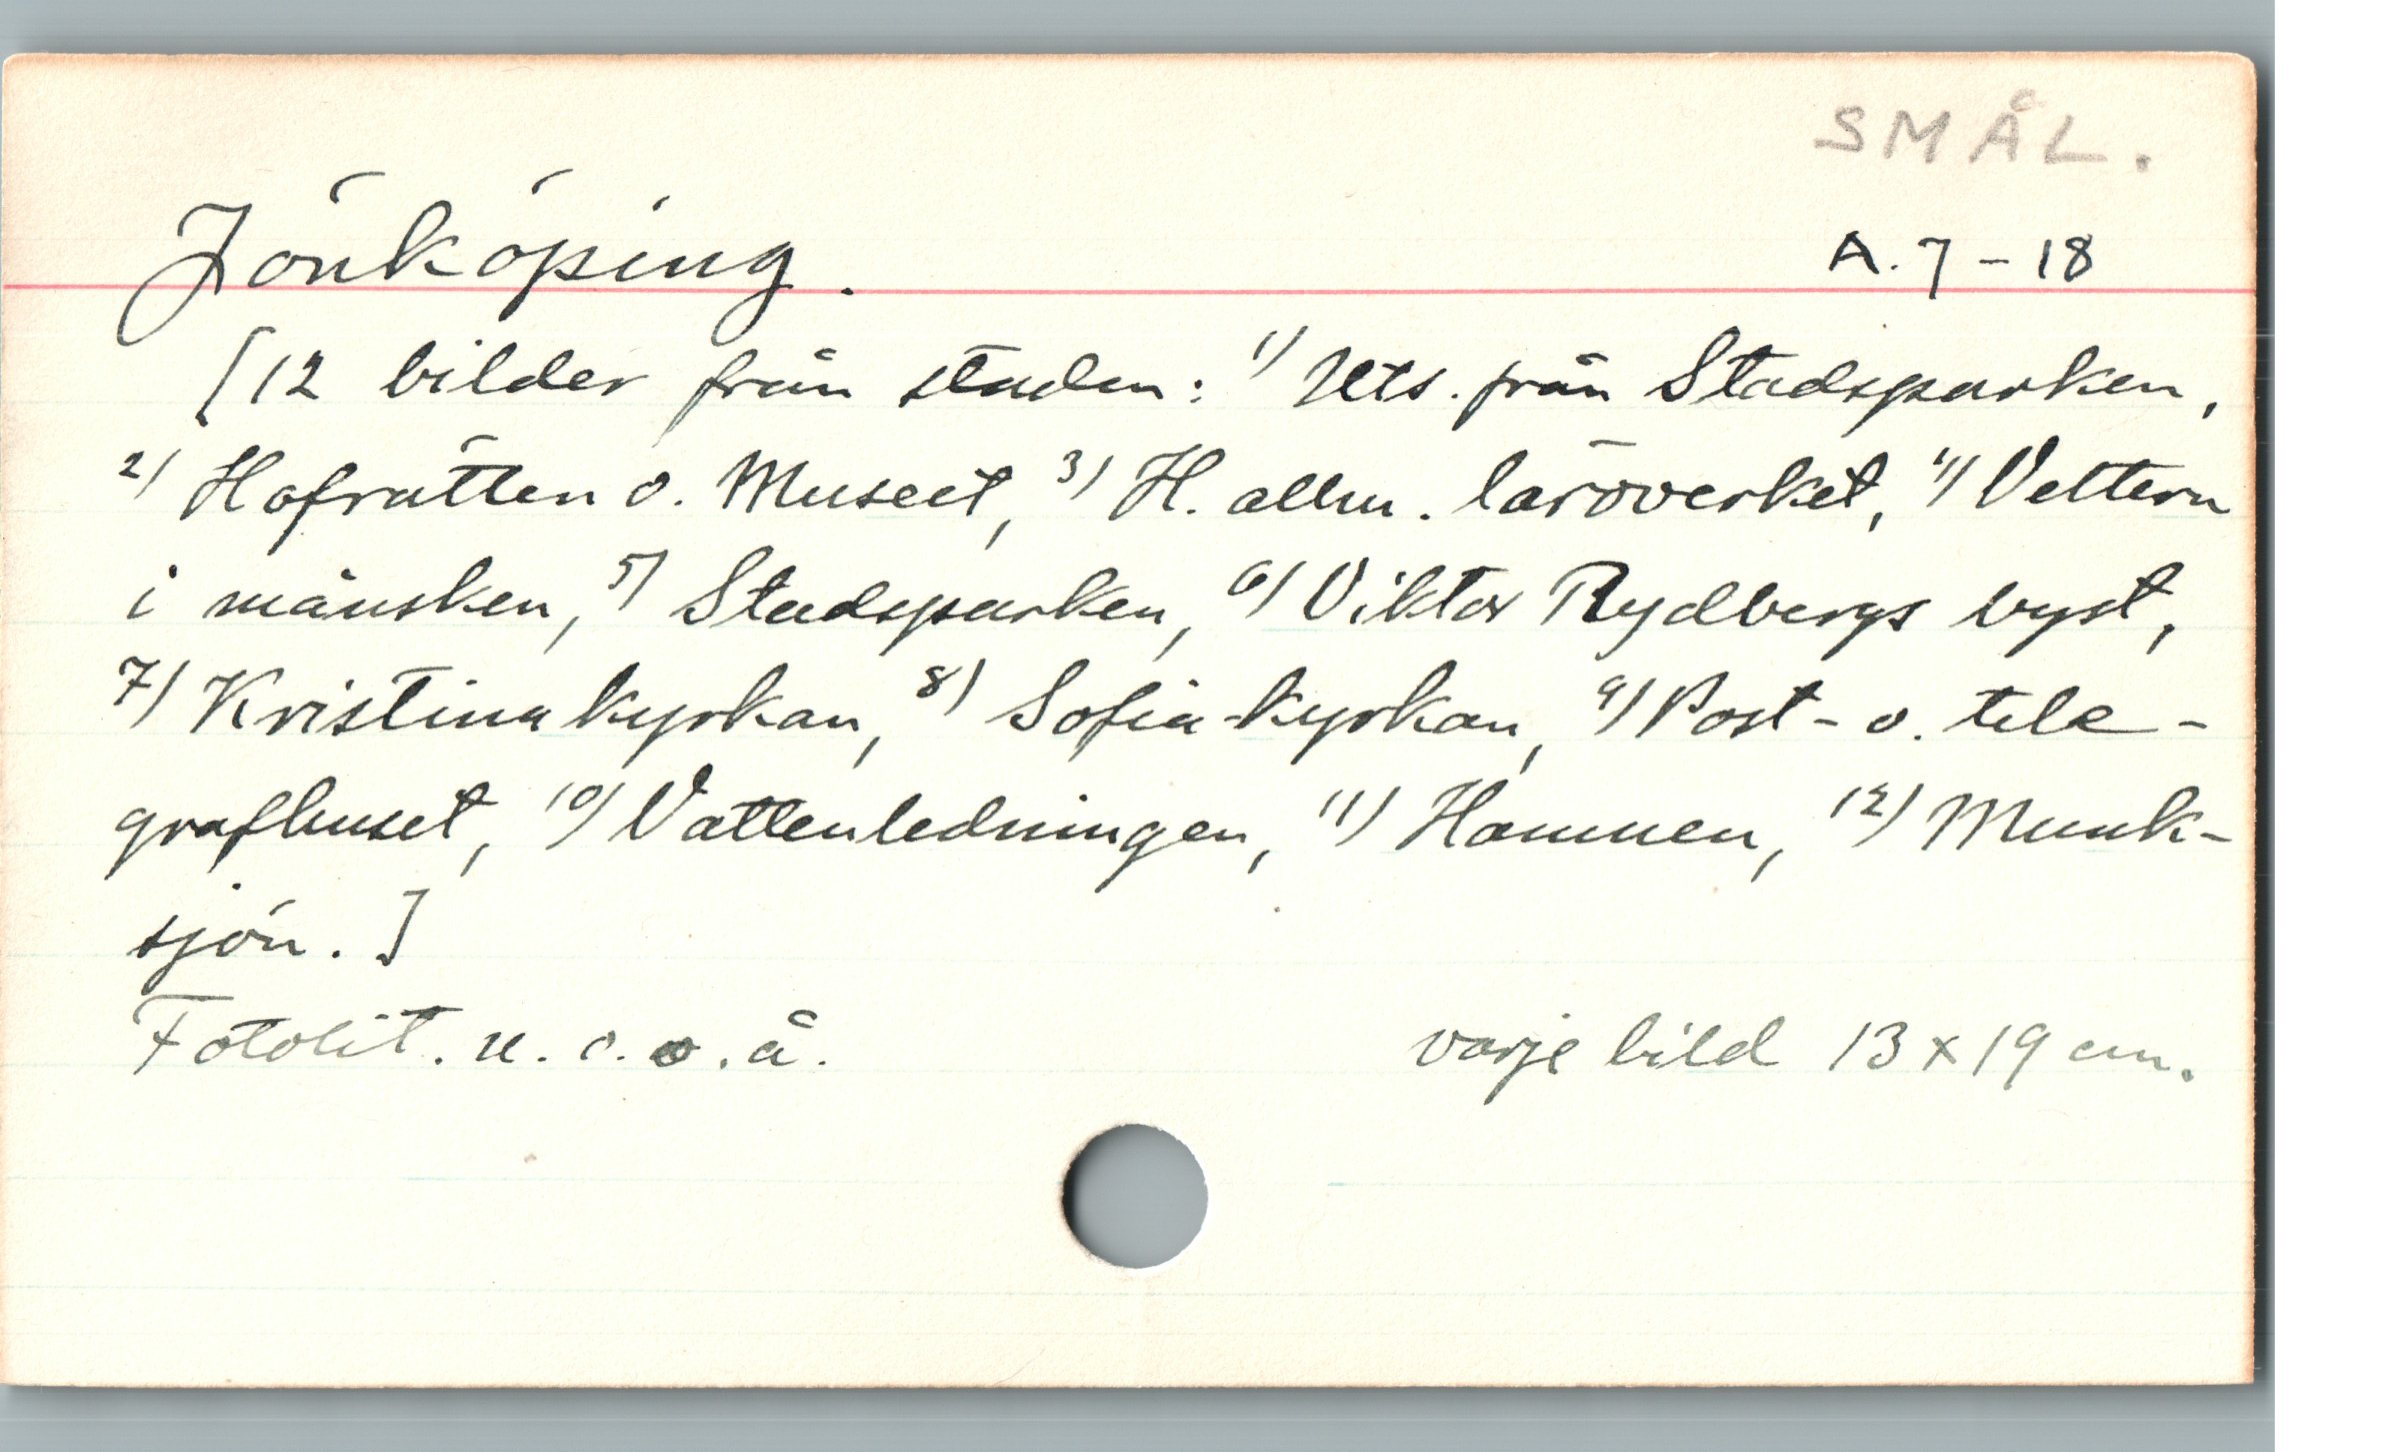 SMÅL.
Jönköping. A. 7 - 18
[12 bilder från staden: 1) Uts. från Stadsparken,
2) Hofrätten o. Museet, 3) H. allm. läroverket, 4) Vettern
i månsken, 5) Stadsparken, 6) Viktor Rydbergs byst,
7) Kristinakyrkan, 8) Sofia-kyrkan, 9) Post- o. tele-
grafhuset, 10) Vattenledningen, 11) Hamnen, 12) Munk-
sjön.]
Fotolit. u. o. o. å. varje bild 13 x 19 cm.